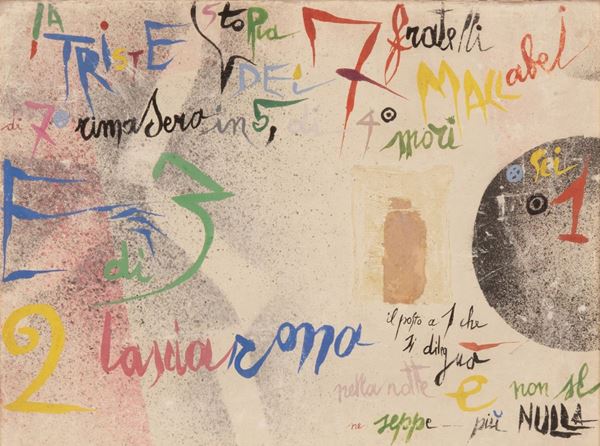 la TRisTE stoRia DEi 7 fratelli MACCabei
di 7° rimasero in 5, di 4° morì
E di 3 o sei o 1
2 lasciarono
il posto a 1 che
si dileguò
nella notte e non se
ne seppe più NULLA